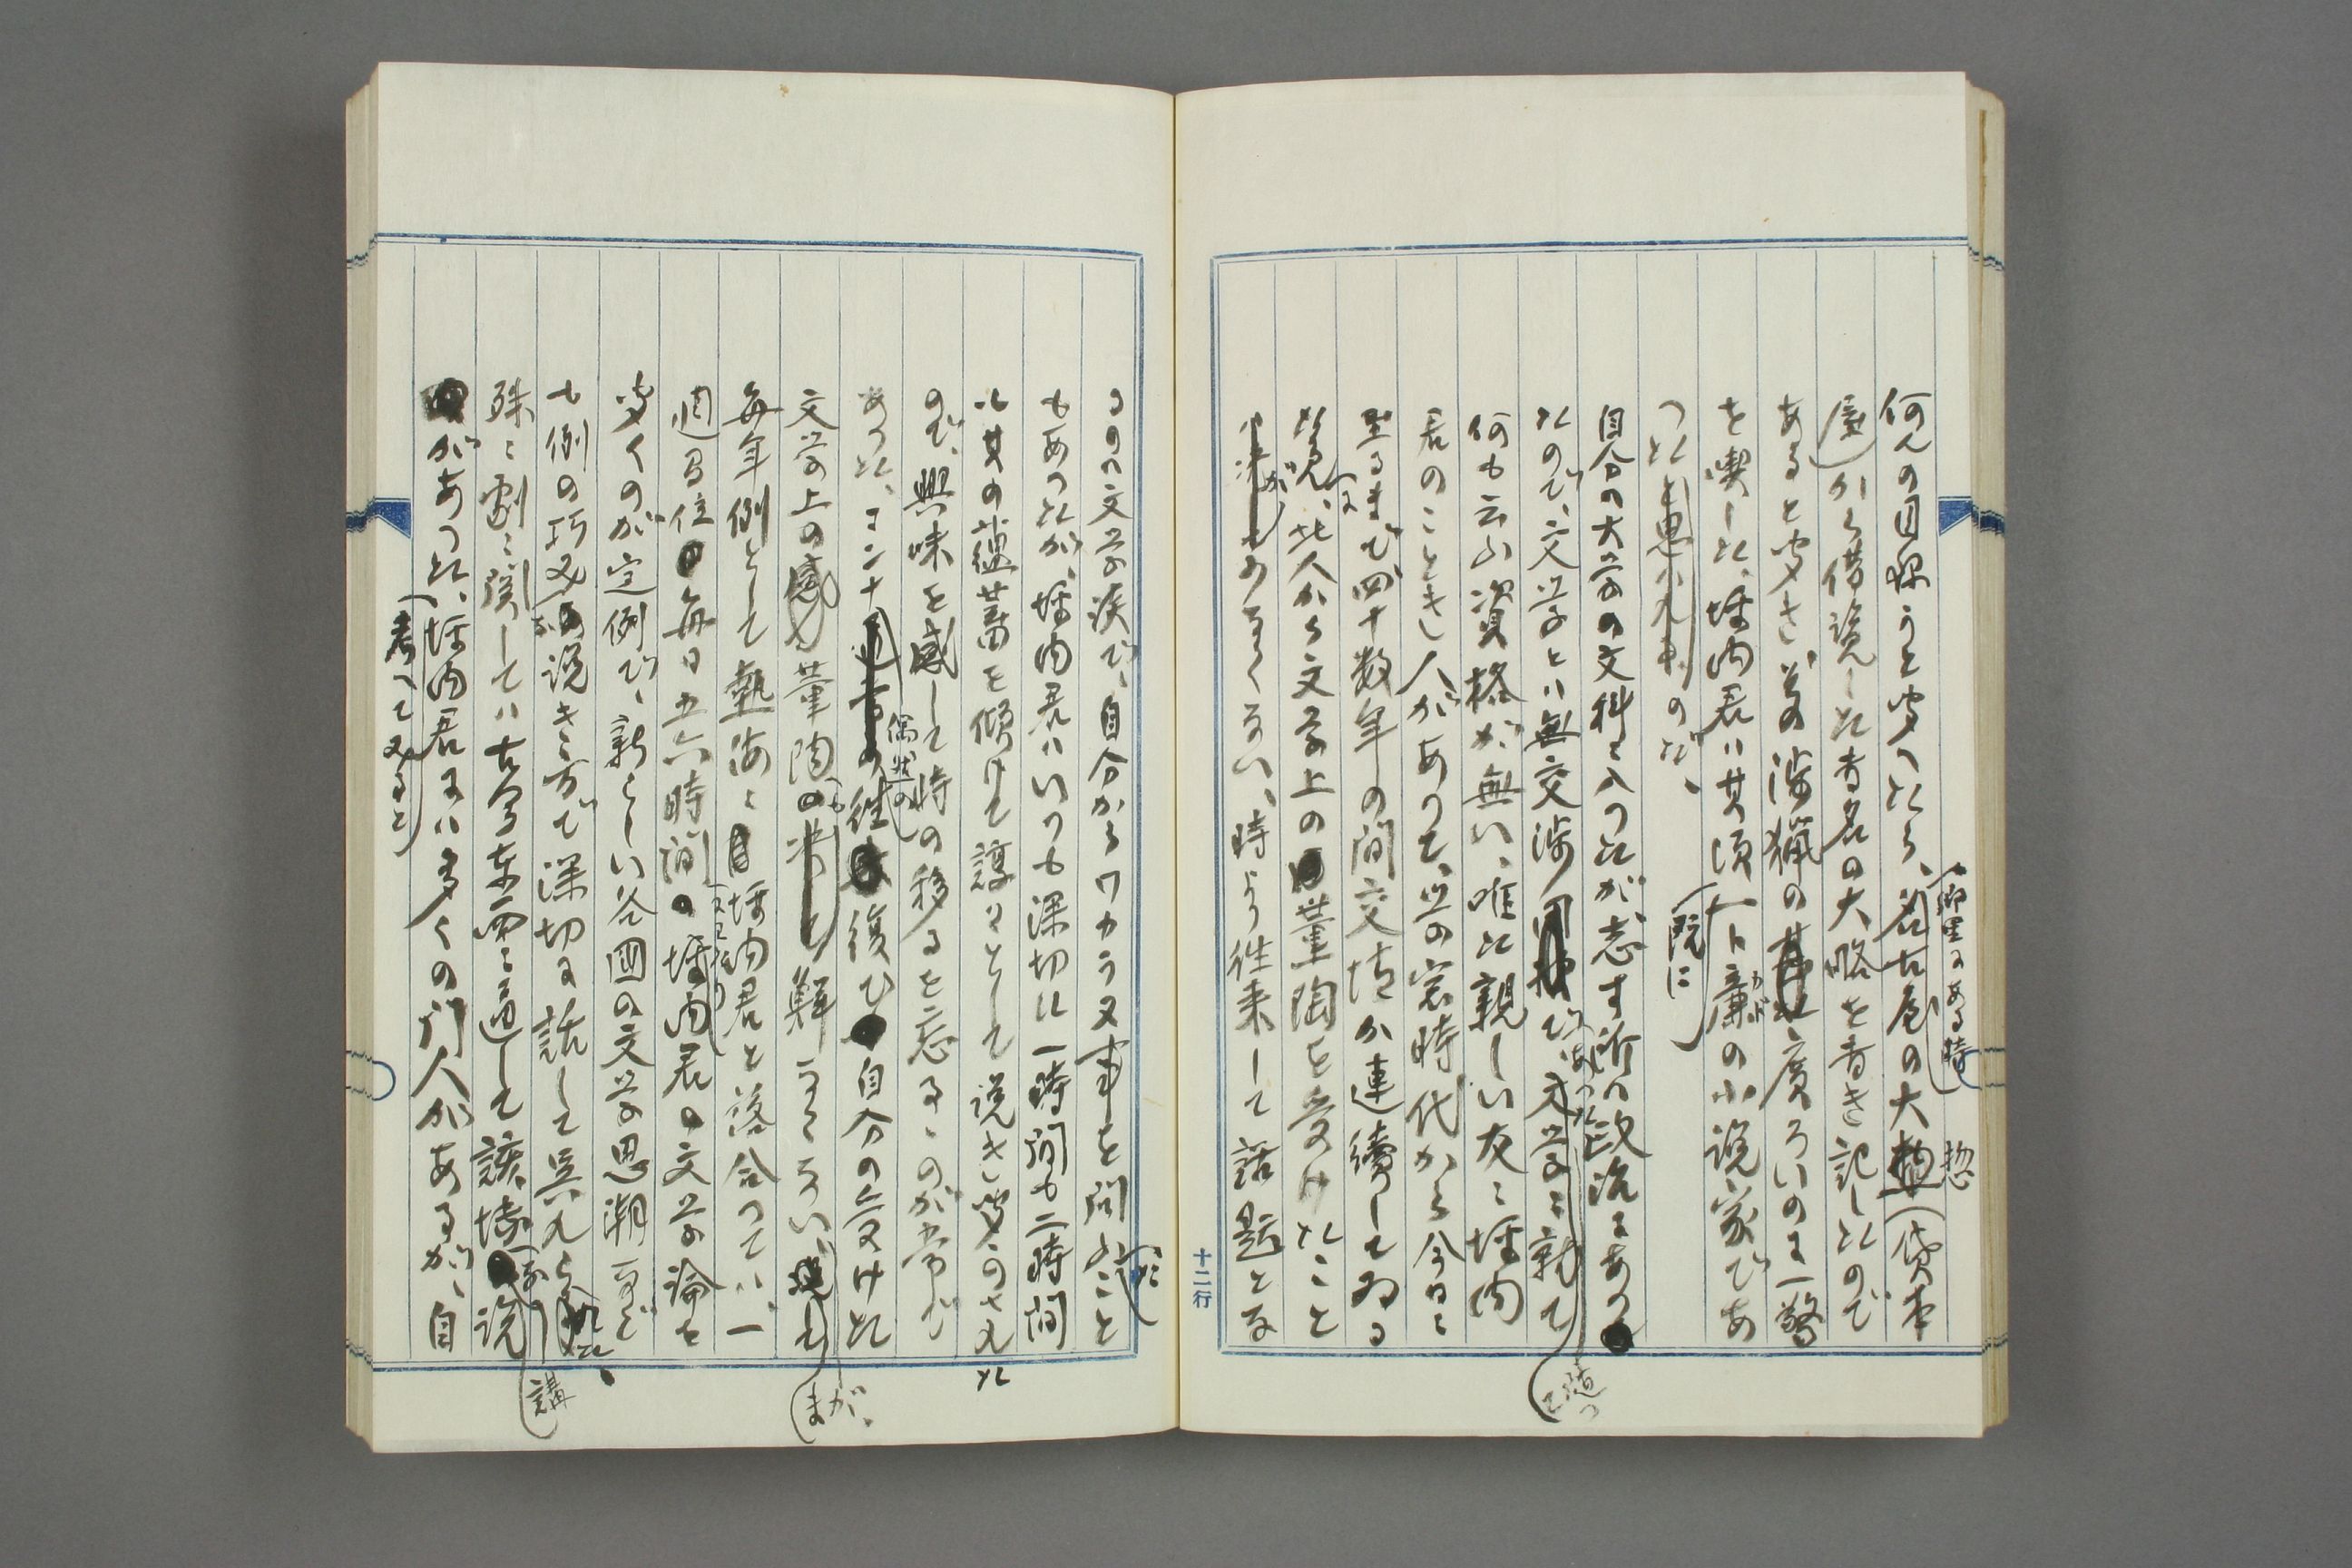 何んの目録かと聞へたら、名古屋の大惣(貸本
(郷里にある時
惣
屋)から借覧した書名の大略を書き記したので
あると聞き、其の渉猟の廣ろいのに一驚
を喫した、坪内君は其頃一ト廉の小説家であ
既に
つたのだ、
自分の大学の文科に入つたが志す所は政治にあつ
たので、文学とは無交渉で、文学に就て
あつた
随つて
何も云ふ資格が無い、唯た親しい友に坪内
君のことき人があつて、学の窓時代から今日に
至るまで四十数年の間交情か連續してゐる
に
此人から文学上の薫陶を受けたこと
が
あるくない、時より往来して話題とな
十二行
るの文学談で、自分からワカラヌ事を問ふこと
だに
もあつたが、坪内君はいつも深切に一時間も二時間
も其の蘊蓄を傾けて諄々として説き聞かのされ
た
ので、興味を感して時の移るを忘るゝのが常で
あつた、コンナ
偶然の
往復ひ自分の受けた
文学の上の薫陶も鮮くない、
が、
毎年例として熱海に坪内君と落合つては、一
週間位毎日五六時間の坪内君の文学論を
聞くのが定例で、新らしい各國の文学思潮など
も例の巧みな説き方で深切に話して呉れられた、
殊に劇に関しては古今東西に通して該博な説
講
があつた、坪内君には多くの門人があるが、自
考へて見ると